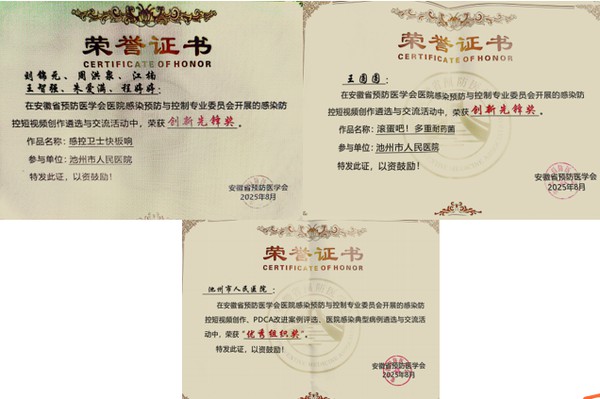 荣誉证书
CERTIFICATE OF HONOR
胡锦元、周洪泉、江楠
王智强、朱爱满、程婷婷：
在安徽省预防医学会医院感染预防与控制专业委员会开展的感染防
控短视频创作遴选与交流活动中，荣获 创新先锋奖。
作品名称：感控卫士快板响
参与单位：池州市人民医院
特发此证，以资鼓励！
安徽省预防医学会
2025年8月
荣誉证书
CERTIFICATE OF HONOR
王圆圆：
在安徽省预防医学会医院感染预防与控制专业委员会开展的感染防
控短视频创作遴选与交流活动中，荣获 创新先锋奖。
作品名称：滚蛋吧！多重耐药菌
参与单位：池州市人民医院
特发此证，以资鼓励！
安徽省预防医学会
2025年8月
荣誉证书
CERTIFICATE OF HONOR
池州市人民医院：
在安徽省预防医学会医院感染预防与控制专业委员会开展的感染防
控短视频创作、PDCA改进案例评选、医院感染典型病例遴选与交流活
动中，荣获“优秀组织奖”。
特发此证，以资鼓励！
安徽省预防医学会
2025年8月